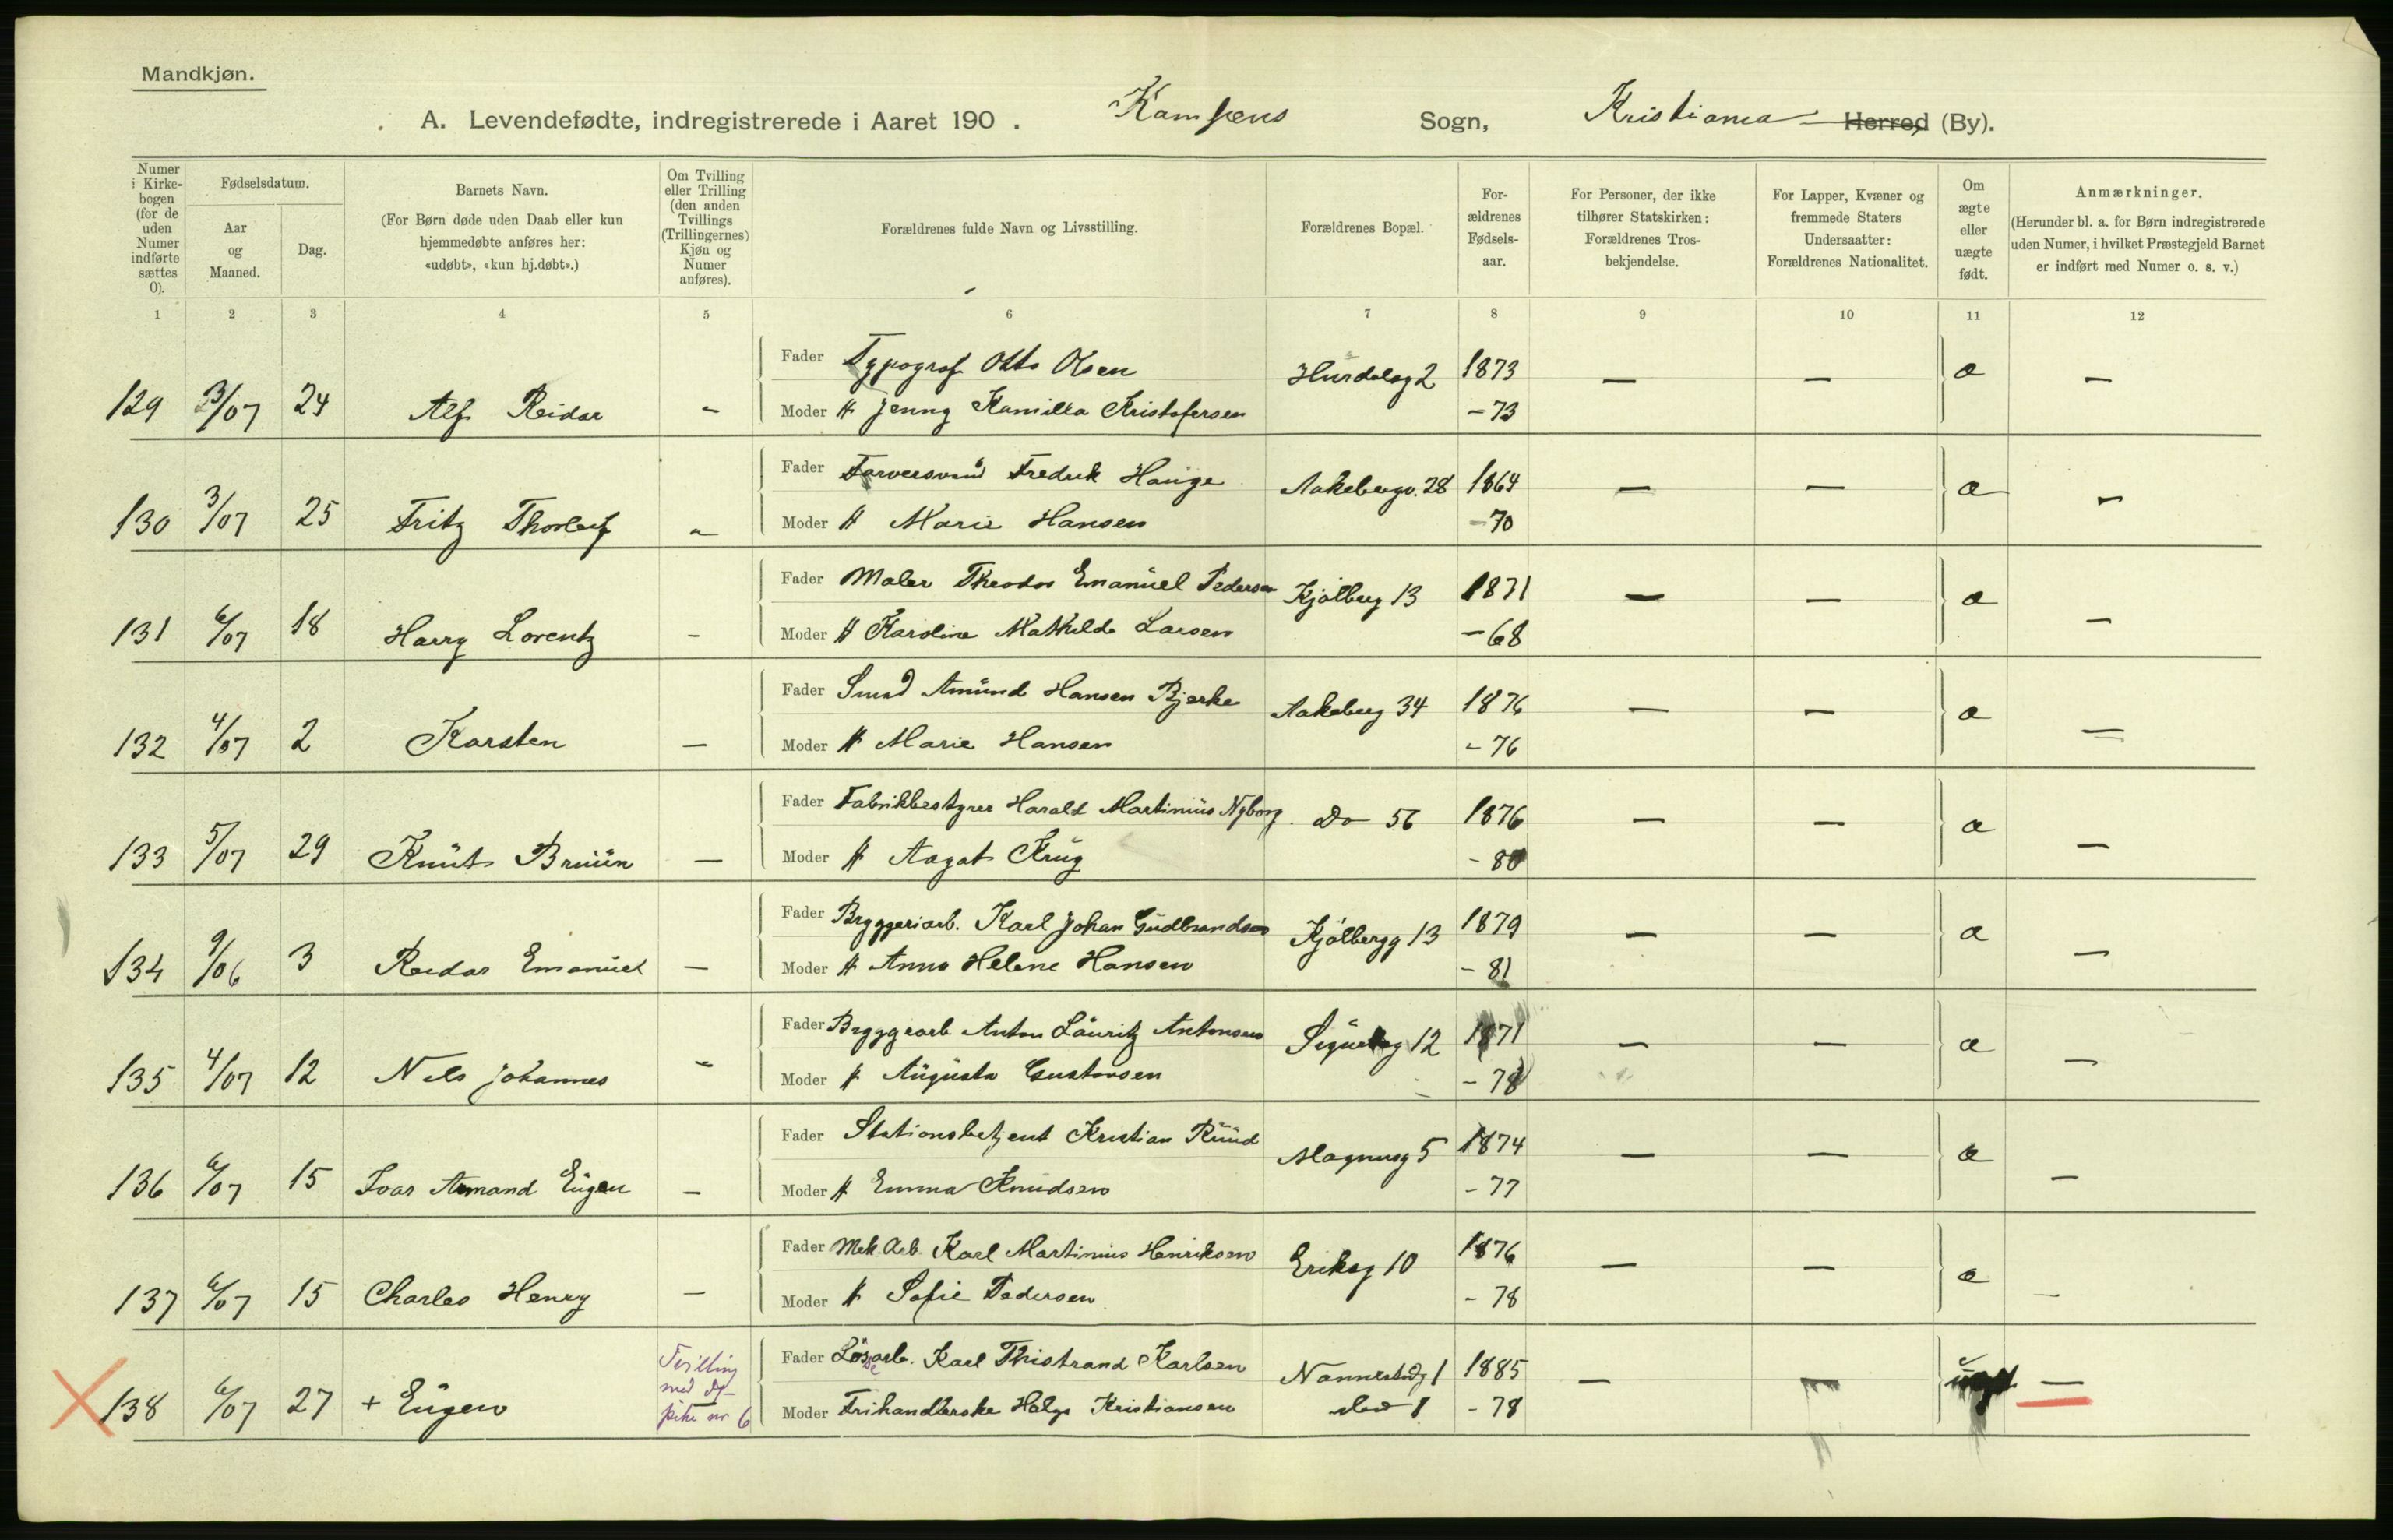 Mandkjøn.
A. Levendefødte, indregistrerede i Aaret 190 . Kampens Sogn, Kristiania Herred (By).
Numer i Kirkebogen (for de uden Numer indførte sættes 0).
Fødselsdatum.
Aar og Maaned.
Dag.
Barnets Navn.
(For Børn døde uden Daab eller kun hjemmedøbte anføres her: «udøbt», «kun hj.døbt».)
Om Tvilling eller Trilling (den anden Tvillings (Trillingernes) Kjøn og Numer anføres).
Forældrenes fulde Navn og Livsstilling.
Forældrenes Bopæl.
Forældrenes Fødselsaar.
For Personer, der ikke tilhører Statskirken: Forældrenes Trosbekjendelse.
For Lapper, Kvæner og fremmede Staters Undersaatter: Forældrenes Nationalitet.
Om ægte eller uægte født.
Anmærkninger.
(Herunder bl. a. for Børn indregistrerede uden Numer, i hvilket Præstegjeld Barnet er indført med Numer o. s. v.)
1 2 3 4 5 6 7 8 9 10 11 12
Fader Typograf Otto Olsen Hurdalsg 2 1873 — — æ —
129 3/07 24 Alf Reidar - Moder H Jenny Kamilla Kristofersen - 73
Fader Farversvend Fredrik Hauge Aakebergv. 28 1864 — — æ —
130 3/07 25 Fritz Thorleif - Moder H Marie Hansen - 70
Fader Maler Theodor Emanuel Pedersen Kjølberg 13 1871 — — æ —
131 6/07 18 Harry Lorentz - Moder H Karoline Mathilde Larsen - 68
Fader Smed Amund Hansen Bjerke Aakeberg 34 1876 — — æ —
132 4/07 2 Karsten — Moder H Marie Hansen - 76
Fader Fabrikbestyrer Harald Martinius Nyborg Do 56 1876 — — æ —
133 5/07 29 Knut Bruun — Moder H Aagot Krug - 80
Fader Bryggeriarb. Karl Johan Gudbrandsen Kjølbergg 13 1879 — — æ —
134 9/06 3 Reidar Emanuel — Moder H Anna Helene Hansen - 81
Fader Bryggearb Anton Lauritz Antonsen 12 1871 — — æ —
135 4/07 12 Nils Johannes - Moder H Augusta Gustavsen - 78
Fader Stationsbetjent Kristian Ruud Magnusg 5 1874 — — æ —
136 6/07 15 Ivar Armand Eugen — Moder H Emma Knudsen - 77
Fader Mek. Arb. Karl Martinius Henriksen Eriksg 10 1876 — — æ —
137 6/07 15 Charles Henry — Moder H Sofie Pedersen - 78
Tvilling med
Fader Løsarb. Karl Thistrand Karlsen 1 1885 — — —
138 6/07 27 + Eugen pike nr 6 Moder Frihandlerske Helga Kristiansen 1 - 78